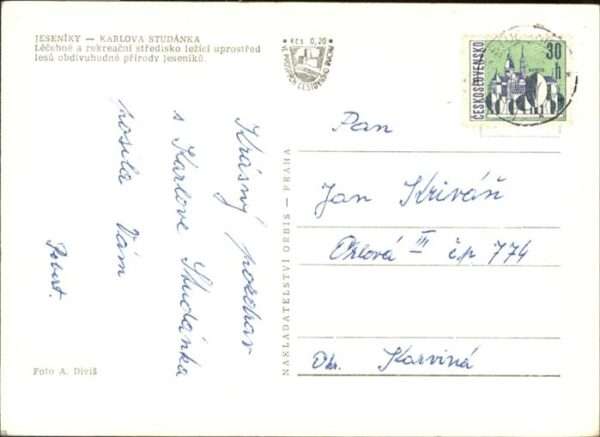 JESENÍKY — KARLOVA STUDÁNKA
Léčebné a rekreační středisko ležící uprostřed
lesů obdivuhodné přírody Jeseníků.
Kčs 0,20
Krásný pozdrav
s Karlove Studánka
posílá Vám
Robert.
Foto A. Diviš
NAKLADATELSTVÍ ORBIS — PRAHA
ČESKOSLOVENSKO
30
h
Pan
Jan Kriváň
Orlová III č.p 774
Okr. Karviná